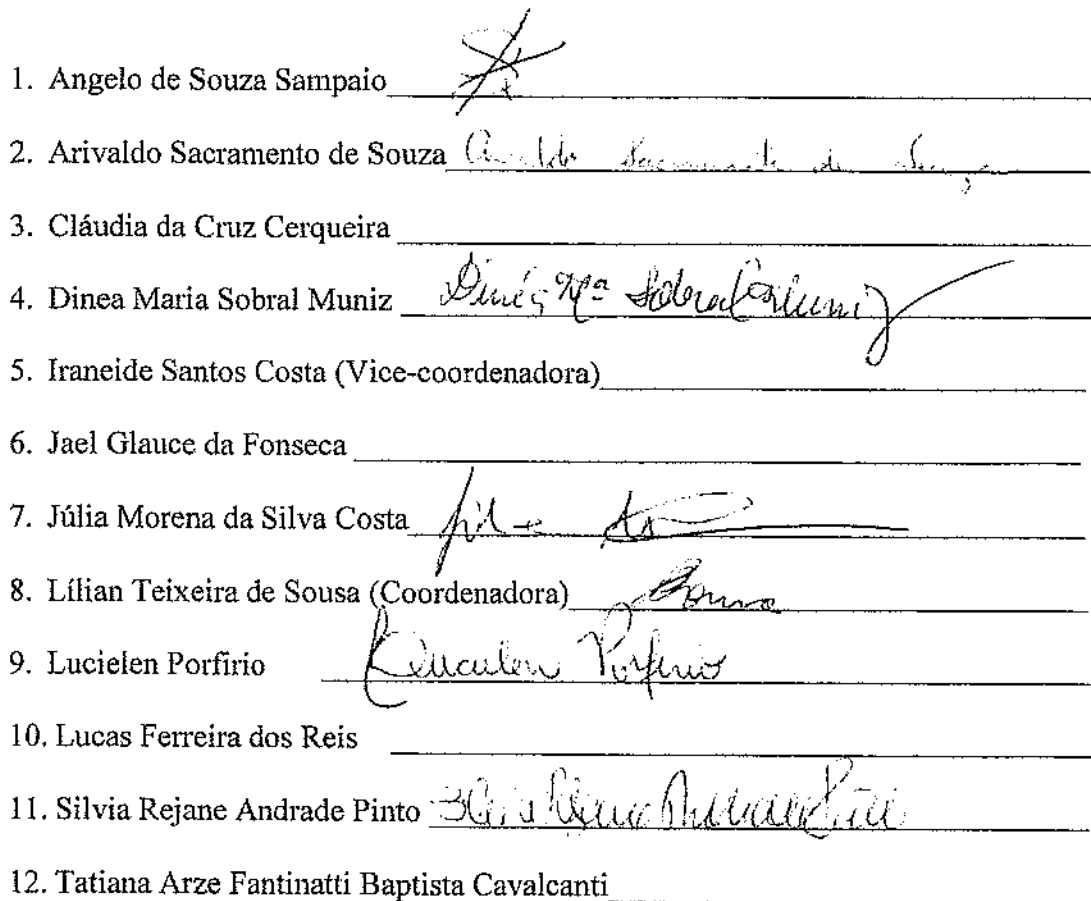 1. Angelo de Souza Sampaio
2. Arivaldo Sacramento de Souza Sacramento de Souza
3. Cláudia da Cruz Cerqueira
4. Dinea Maria Sobral Muniz Dinéa Mª Sobral Muniz
5. Iraneide Santos Costa (Vice-coordenadora)
6. Jael Glauce da Fonseca
7. Júlia Morena da Silva Costa
8. Lílian Teixeira de Sousa (Coordenadora) Sousa
9. Lucielen Porfirio Lucielen Porfirio
10. Lucas Ferreira dos Reis
11. Silvia Rejane Andrade Pinto
12. Tatiana Arze Fantinatti Baptista Cavalcanti